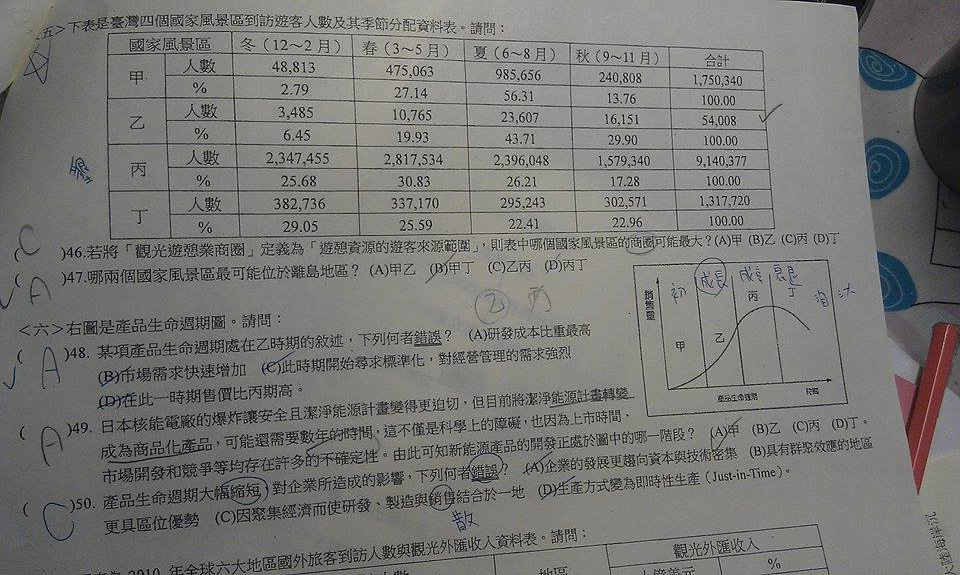 五>下表是臺灣四個國家風景區到訪遊客人數及其季節分配資料表。請問：
國家風景區 冬(12～2月) 春(3～5月) 夏(6～8月) 秋(9～11月) 合計
甲 人數 48,813 475,063 985,656 240,808 1,750,340
% 2.79 27.14 56.31 13.76 100.00
乙 人數 3,485 10,765 23,607 16,151 54,008
% 6.45 19.93 43.71 29.90 100.00
丙 人數 2,347,455 2,817,534 2,396,048 1,579,340 9,140,377
% 25.68 30.83 26.21 17.28 100.00
丁 人數 382,736 337,170 295,243 302,571 1,317,720
% 29.05 25.59 22.41 22.96 100.00
( C )46.若將「觀光遊憩業商圈」定義為「遊憩資源的遊客來源範圍」，則表中哪個國家風景區的商圈可能最大？(A)甲 (B)乙 (C)丙 (D)丁
( A )47.哪兩個國家風景區最可能位於離島地區？ (A)甲乙 (B)甲丁 (C)乙丙 (D)丙丁
乙 丙
<六>右圖是產品生命週期圖。請問：
( A )48. 某項產品生命週期處在乙時期的敘述，下列何者錯誤？ (A)研發成本比重最高
(B)市場需求快速增加 (C)此時期開始尋求標準化，對經營管理的需求強烈
(D)在此一時期售價比丙期高。
銷售量
初 成長 成熟 衰退
甲 乙 丙 丁
淘汰
產品生命週期
時間
( A )49. 日本核能電廠的爆炸讓安全且潔淨能源計畫變得更迫切，但目前將潔淨能源計畫轉變
成為商品化產品，可能還需要數年的時間，這不僅是科學上的障礙，也因為上市時間、
市場開發和競爭等均存在許多的不確定性。由此可知新能源產品的開發正處於圖中的哪一階段？ (A)甲 (B)乙 (C)丙 (D)丁。
( C )50. 產品生命週期大幅縮短，對企業所造成的影響，下列何者錯誤？ (A)企業的發展更趨向資本與技術密集 (B)具有群聚效應的地區
更具區位優勢 (C)因聚集經濟而使研發、製造與銷售結合於一地 (D)生產方式變為即時性生產（Just-in-Time）。
散
2010 年全球六大地區國外旅客到訪人數與觀光外匯收入資料表。請問：
人數 地區 觀光外匯收入
十億美元 %
大陸海岸沉